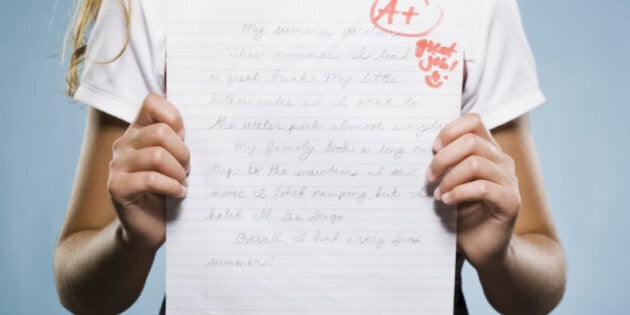 A+
great
job!
My summer vacation
This summer I had
a great break. My little
bother mike ad I went to
the water park almost everyday
My family took a long car
trip to the mountains ad saw
moose I liked camping but I
hated all the bugs.
Overall, I had a very fun
summer!